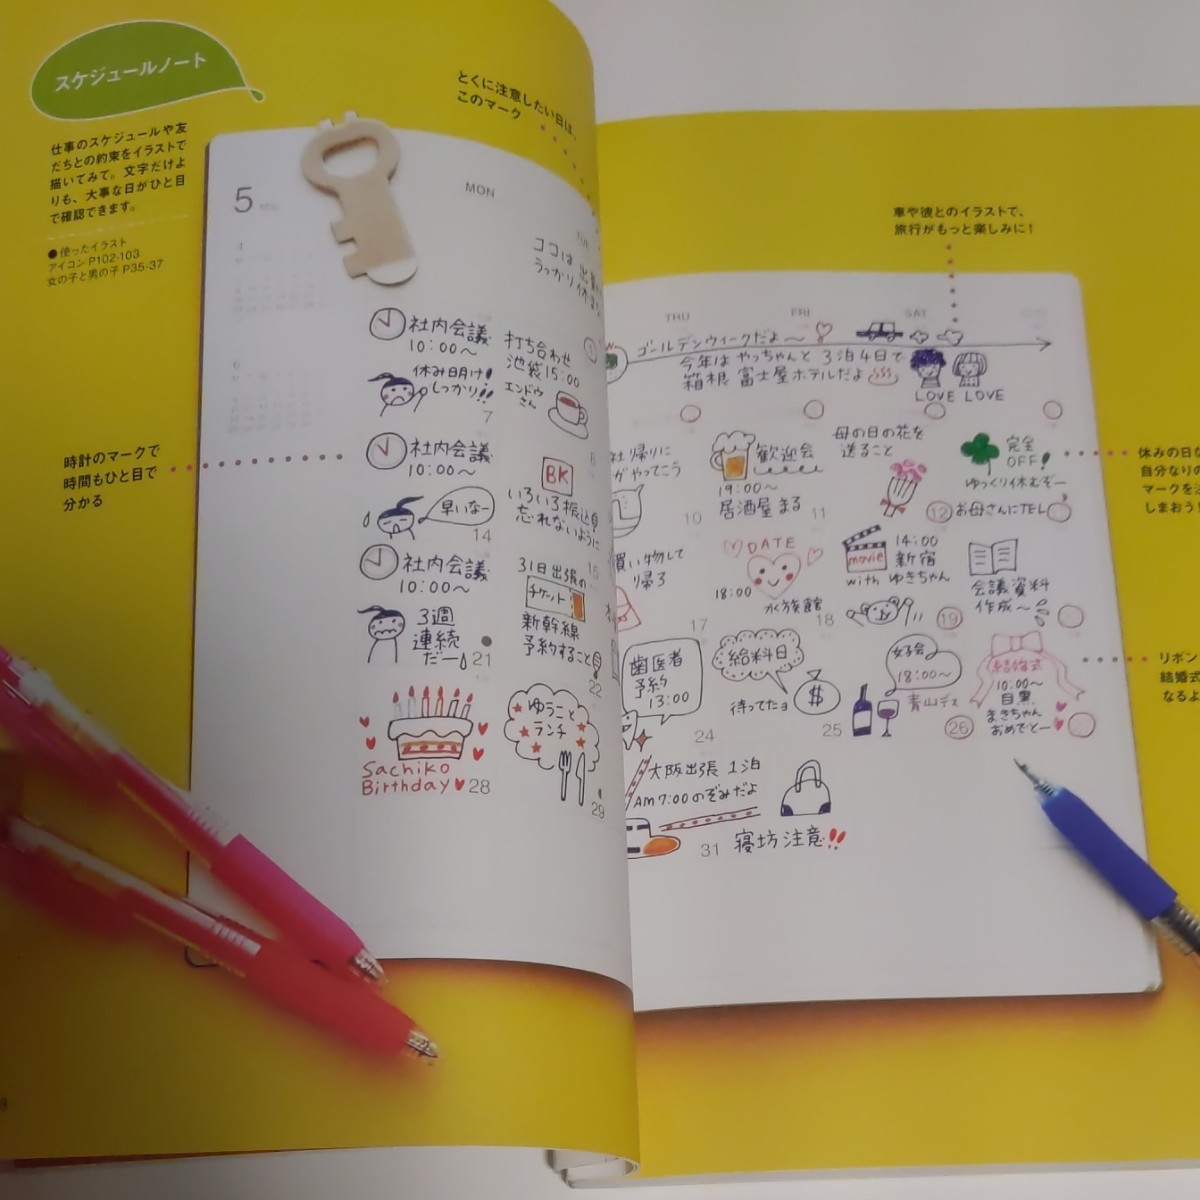 スケジュールノート
仕事のスケジュールや友
だちとの約束をイラストで
描いてみて。文字だけよ
りも、大事な日がひと目
で確認できます。
●使ったイラスト
アイコン P102-103
女の子と男の子 P35-37
とくに注意したい日は、
このマーク
時計のマークで
時間もひと目で
分かる
5
MON
ココは
うっかり
社内会議
10:00〜
休み明け!
しっかり!!
7
打ち合わせ
池袋15:00
エンドウ
さん
社内会議
10:00〜
早いなー
14
BK
いろいろ振込日
忘れないように
社内会議
10:00〜
3週
連続
だー
21
31日出張の
チケット
新幹線
予約すること
22
Sachiko
Birthday
28
ゆうことランチ
29
車や彼とのイラストで、
旅行がもっと楽しみに!
THU
FRI
SAT
ゴールデンウィークだよ〜
今年は やっちゃんと 3泊4日で
箱根 富士屋ホテルだよ
LOVE LOVE
帰りに
がやってこう
10
歓迎会
19:00〜
居酒屋 まる
11
母の日の花を
送ること
12
完全
OFF!
ゆっくり休むぞー
お母さんにTEL
買い物して
帰る
17
DATE
18:00
水族館
18
movie
14:00
新宿
with ゆきちゃん
19
会議資料
作成〜
歯医者
予約
13:00
24
給料日
待ってたョ
$
25
女子会
18:00〜
青山デス
26
結婚式
10:00〜
目黒
まきちゃん
おめでとー
大阪出張 1泊
AM7:00のぞみだよ
31
寝坊注意!!
休みの日
自分なりの
マークを
しまおう!
リボン
結婚式
なるよ